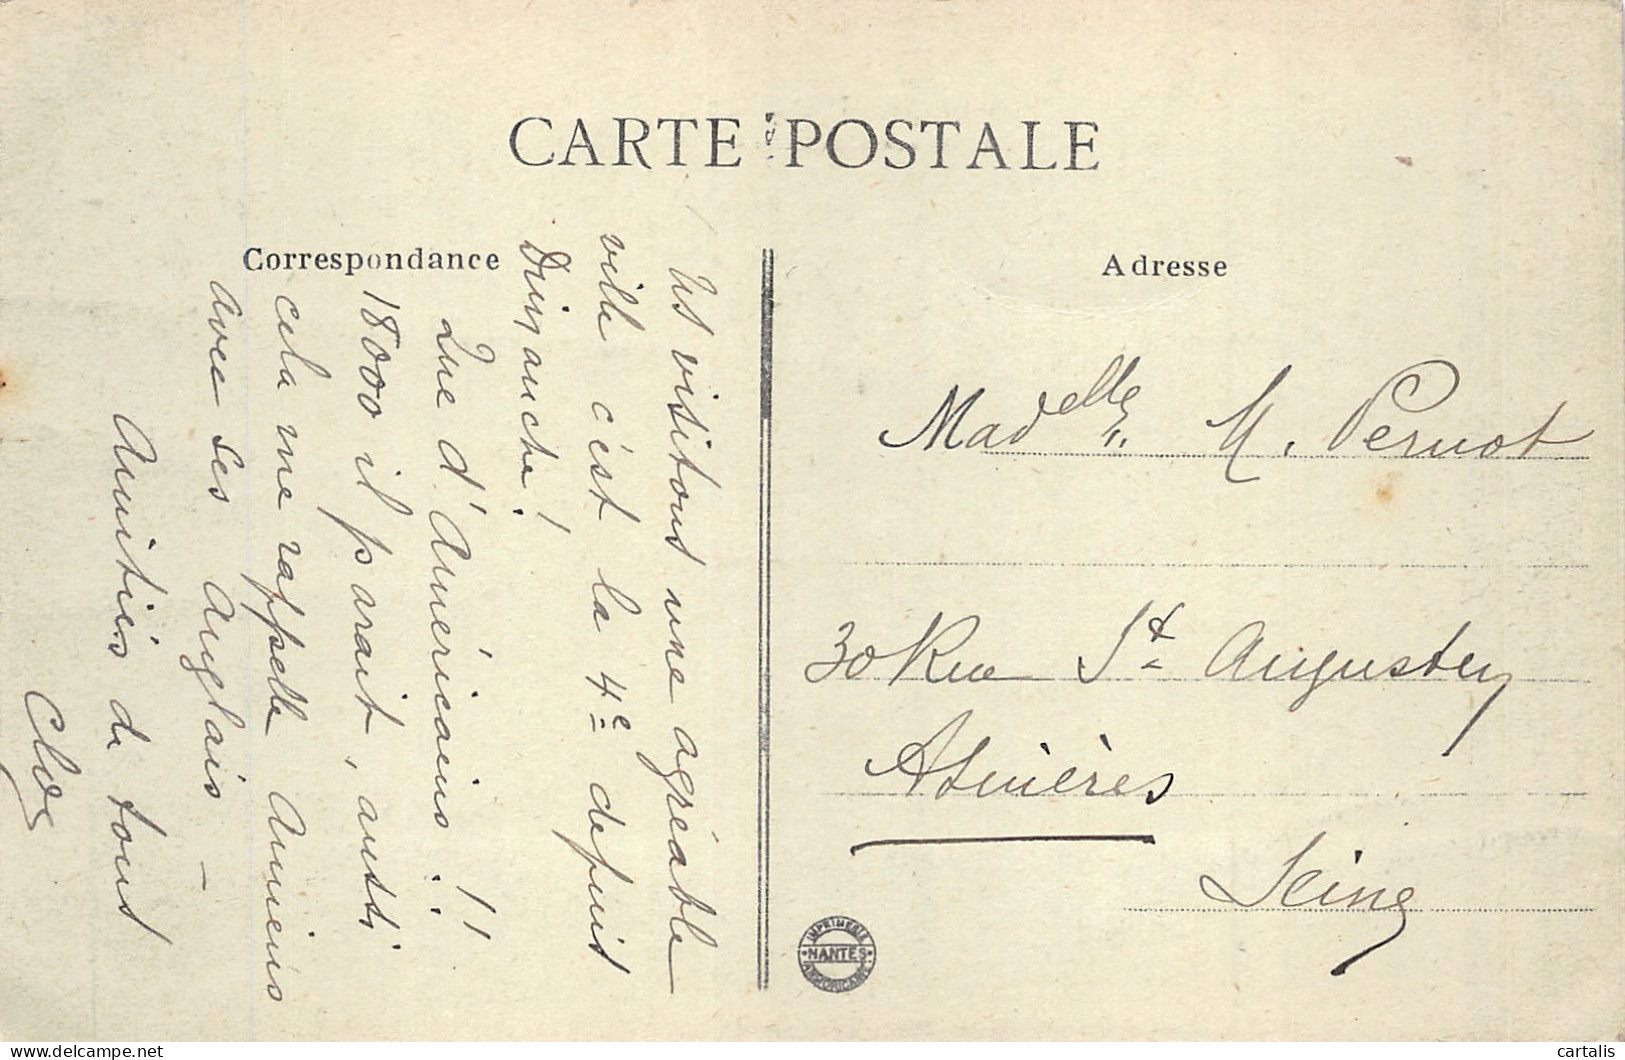 CARTE POSTALE
Correspondance
Ns visitons une agréable
ville c'est la 4e depuis
Dimanche!
Que d'Américains!!
18000 il parait, aussi
cela me rappelle Amiens
avec ses Anglais –
Amitiés de tous
Adresse
Madelle M. Pernot
30 Rue St Augustin
Asnières
Seine
IMPRIMERIE
NANTES
ARMORICAINE
cartalis
delcampe.net